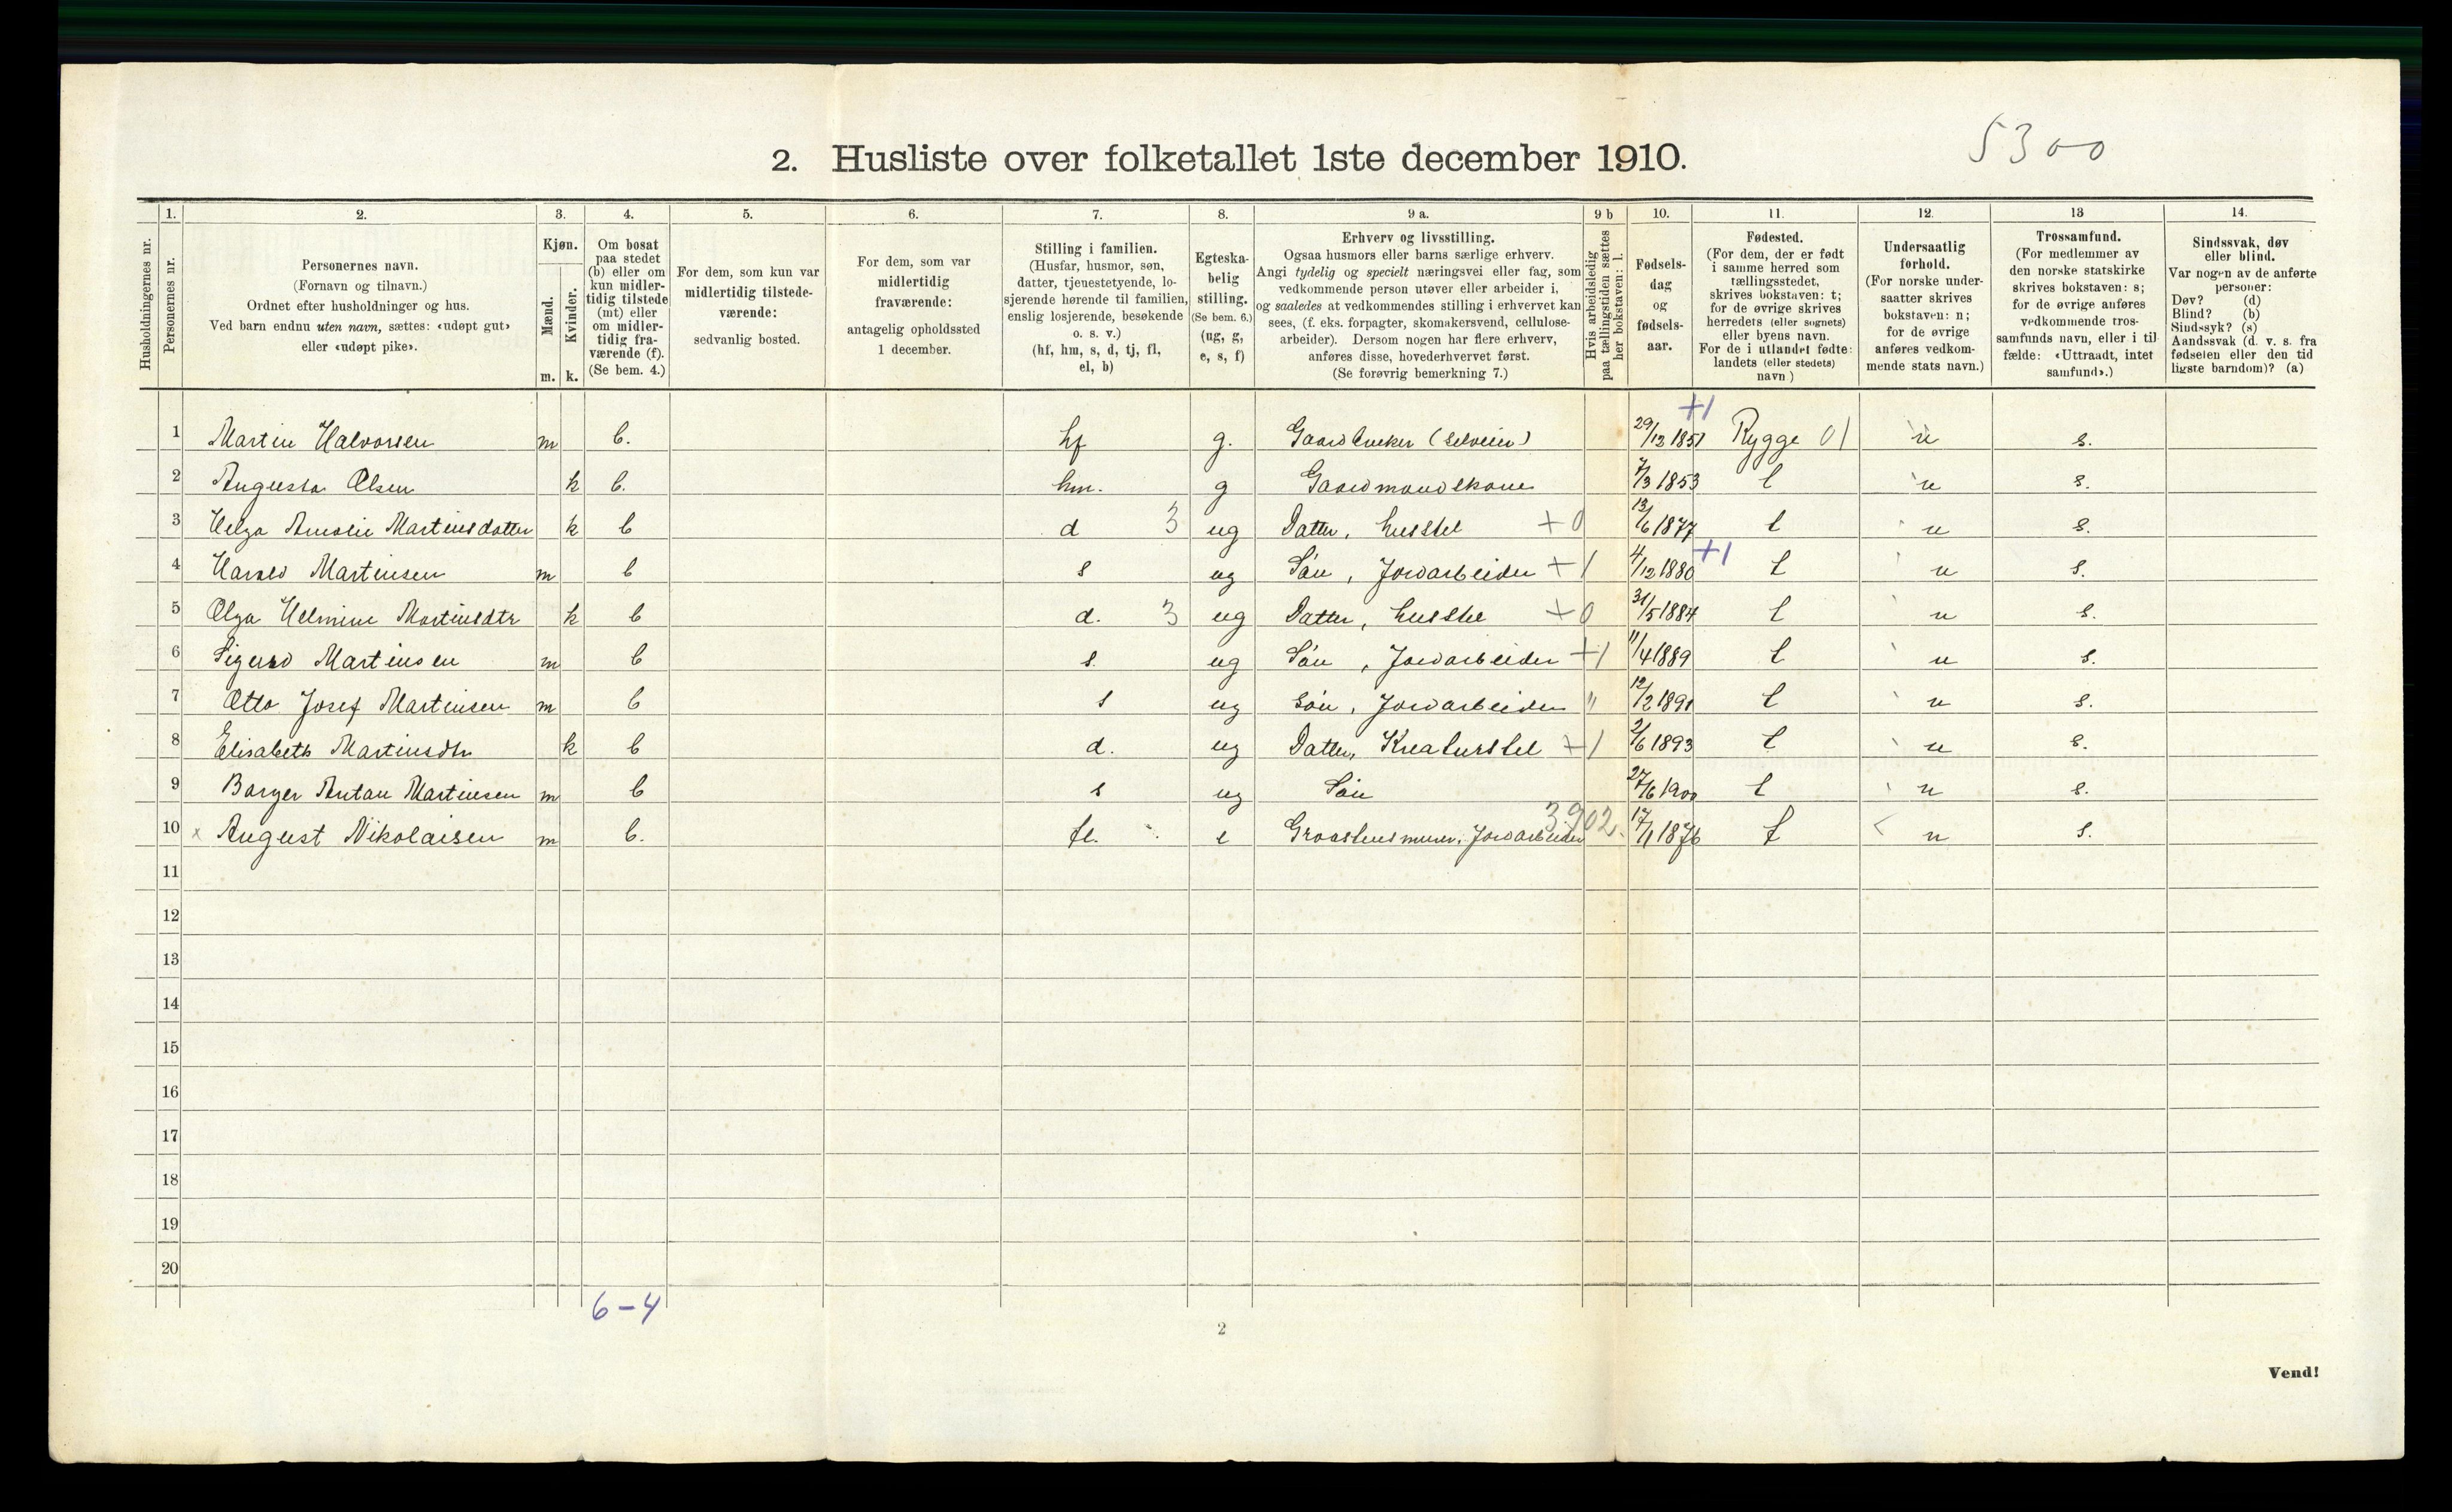 5300
2. Husliste over folketallet 1ste december 1910.
1. 2. 3. 4. 5. 6. 7. 8. 9 a. 9 b 10. 11. 12. 13 14.
Husholdningernes nr.
Personernes nr.
Personernes navn.
(Fornavn og tilnavn.)
Ordnet efter husholdninger og hus.
Ved barn endnu uten navn, sættes: «udøpt gut»
eller «udøpt pike».
Kjøn.
Mænd.
Kvinder.
m. k.
Om bosat
paa stedet
(b) eller om
kun midler-
tidig tilstede
(mt) eller
om midler-
tidig fra-
værende (f).
(Se bem. 4.)
For dem, som kun var
midlertidig tilstede-
værende:
sedvanlig bosted.
For dem, som var
midlertidig
fraværende:
antagelig opholdssted
1 december.
Stilling i familien.
(Husfar, husmor, søn,
datter, tjenestetyende, lo-
sjerende hørende til familien,
enslig losjerende, besøkende
o. s. v.)
(hf, hm, s, d, tj, fl,
el, b)
Egteska-
belig
stilling.
(Se bem. 6.)
(ug, g,
e, s, f)
Erhverv og livsstilling.
Ogsaa husmors eller barns særlige erhverv.
Angi tydelig og specielt næringsvei eller fag, som
vedkommende person utøver eller arbeider i,
og saaledes at vedkommendes stilling i erhvervet kan
sees, (f. eks. forpagter, skomakersvend, cellulose-
arbeider). Dersom nogen har flere erhverv,
anføres disse, hovederhvervet først.
(Se forøvrig bemerkning 7.)
Hvis arbeidsledig
paa tællingstiden sættes
her bokstaven: l.
Fødsels-
dag
og
fødsels-
aar.
Fødested.
(For dem, der er født
i samme herred som
tællingsstedet,
skrives bokstaven: t;
for de øvrige skrives
herredets (eller sognets)
eller byens navn.
For de i utlandet fødte:
landets (eller stedets)
navn.)
Undersaatlig
forhold.
(For norske under-
saatter skrives
bokstaven: n;
for de øvrige
anføres vedkom-
mende stats navn.)
Trossamfund.
(For medlemmer av
den norske statskirke
skrives bokstaven: s;
for de øvrige anføres
vedkommende tros-
samfunds navn, eller i til-
fælde: «Uttraadt, intet
samfund».)
Sindssvak, døv
eller blind.
Var nogen av de anførte
personer:
Døv? (d)
Blind? (b)
Sindssyk? (s)
Aandssvak (d. v. s. fra
fødselen eller den tid
ligste barndom)? (a)
+1
1 Martin Halvorsen m b. hf g. Gaardbruker (selveier) 29/12 1851 Rygge 01 n s.
2 Augusta Olsen k b. hm. g Gaardmandskone 7/3 1853 t n s.
3 Helga Amalie Martinsdatter k b d 3 ug Datter, husstel +0 13/6 1877 t n s.
4 Harald Martinsen m b s ug Søn, Jordarbeider +1 4/12 1880 +1 t n s.
5 Olga Helmine Martinsdtr k b d. 3 ug Datter, husstel +0 31/5 1884 t n s.
6 Sigurd Martinsen m b s. ug Søn, Jordarbeider +1 11/4 1889 t n s.
7 Otto Josef Martinsen m b s ug Søn, Jordarbeider " 12/2 1891 t n s.
8 Elisabeth Martinsdtr k b d. ug Datter, Kreaturstel +1 2/6 1893 t n s.
9 Borger Antau Martinsen m b s ug Søn 27/6 1900 t n s.
3902.
10 x August Nikolaisen m b. fl. e Graastensmurer, Jordarbeider 17/1 1876 t n s.
11
12
13
14
15
16
17
18
19
20
6-4
2
Vend!